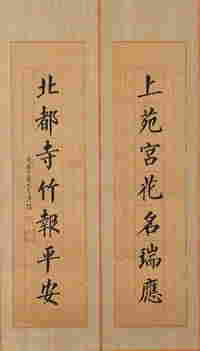 上苑宮花名瑞應
北都寺竹報平安